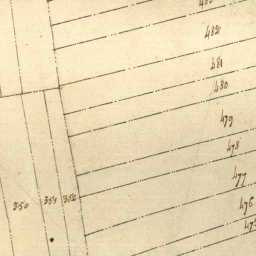 482
481
480
479
478
477
476
350
351
352